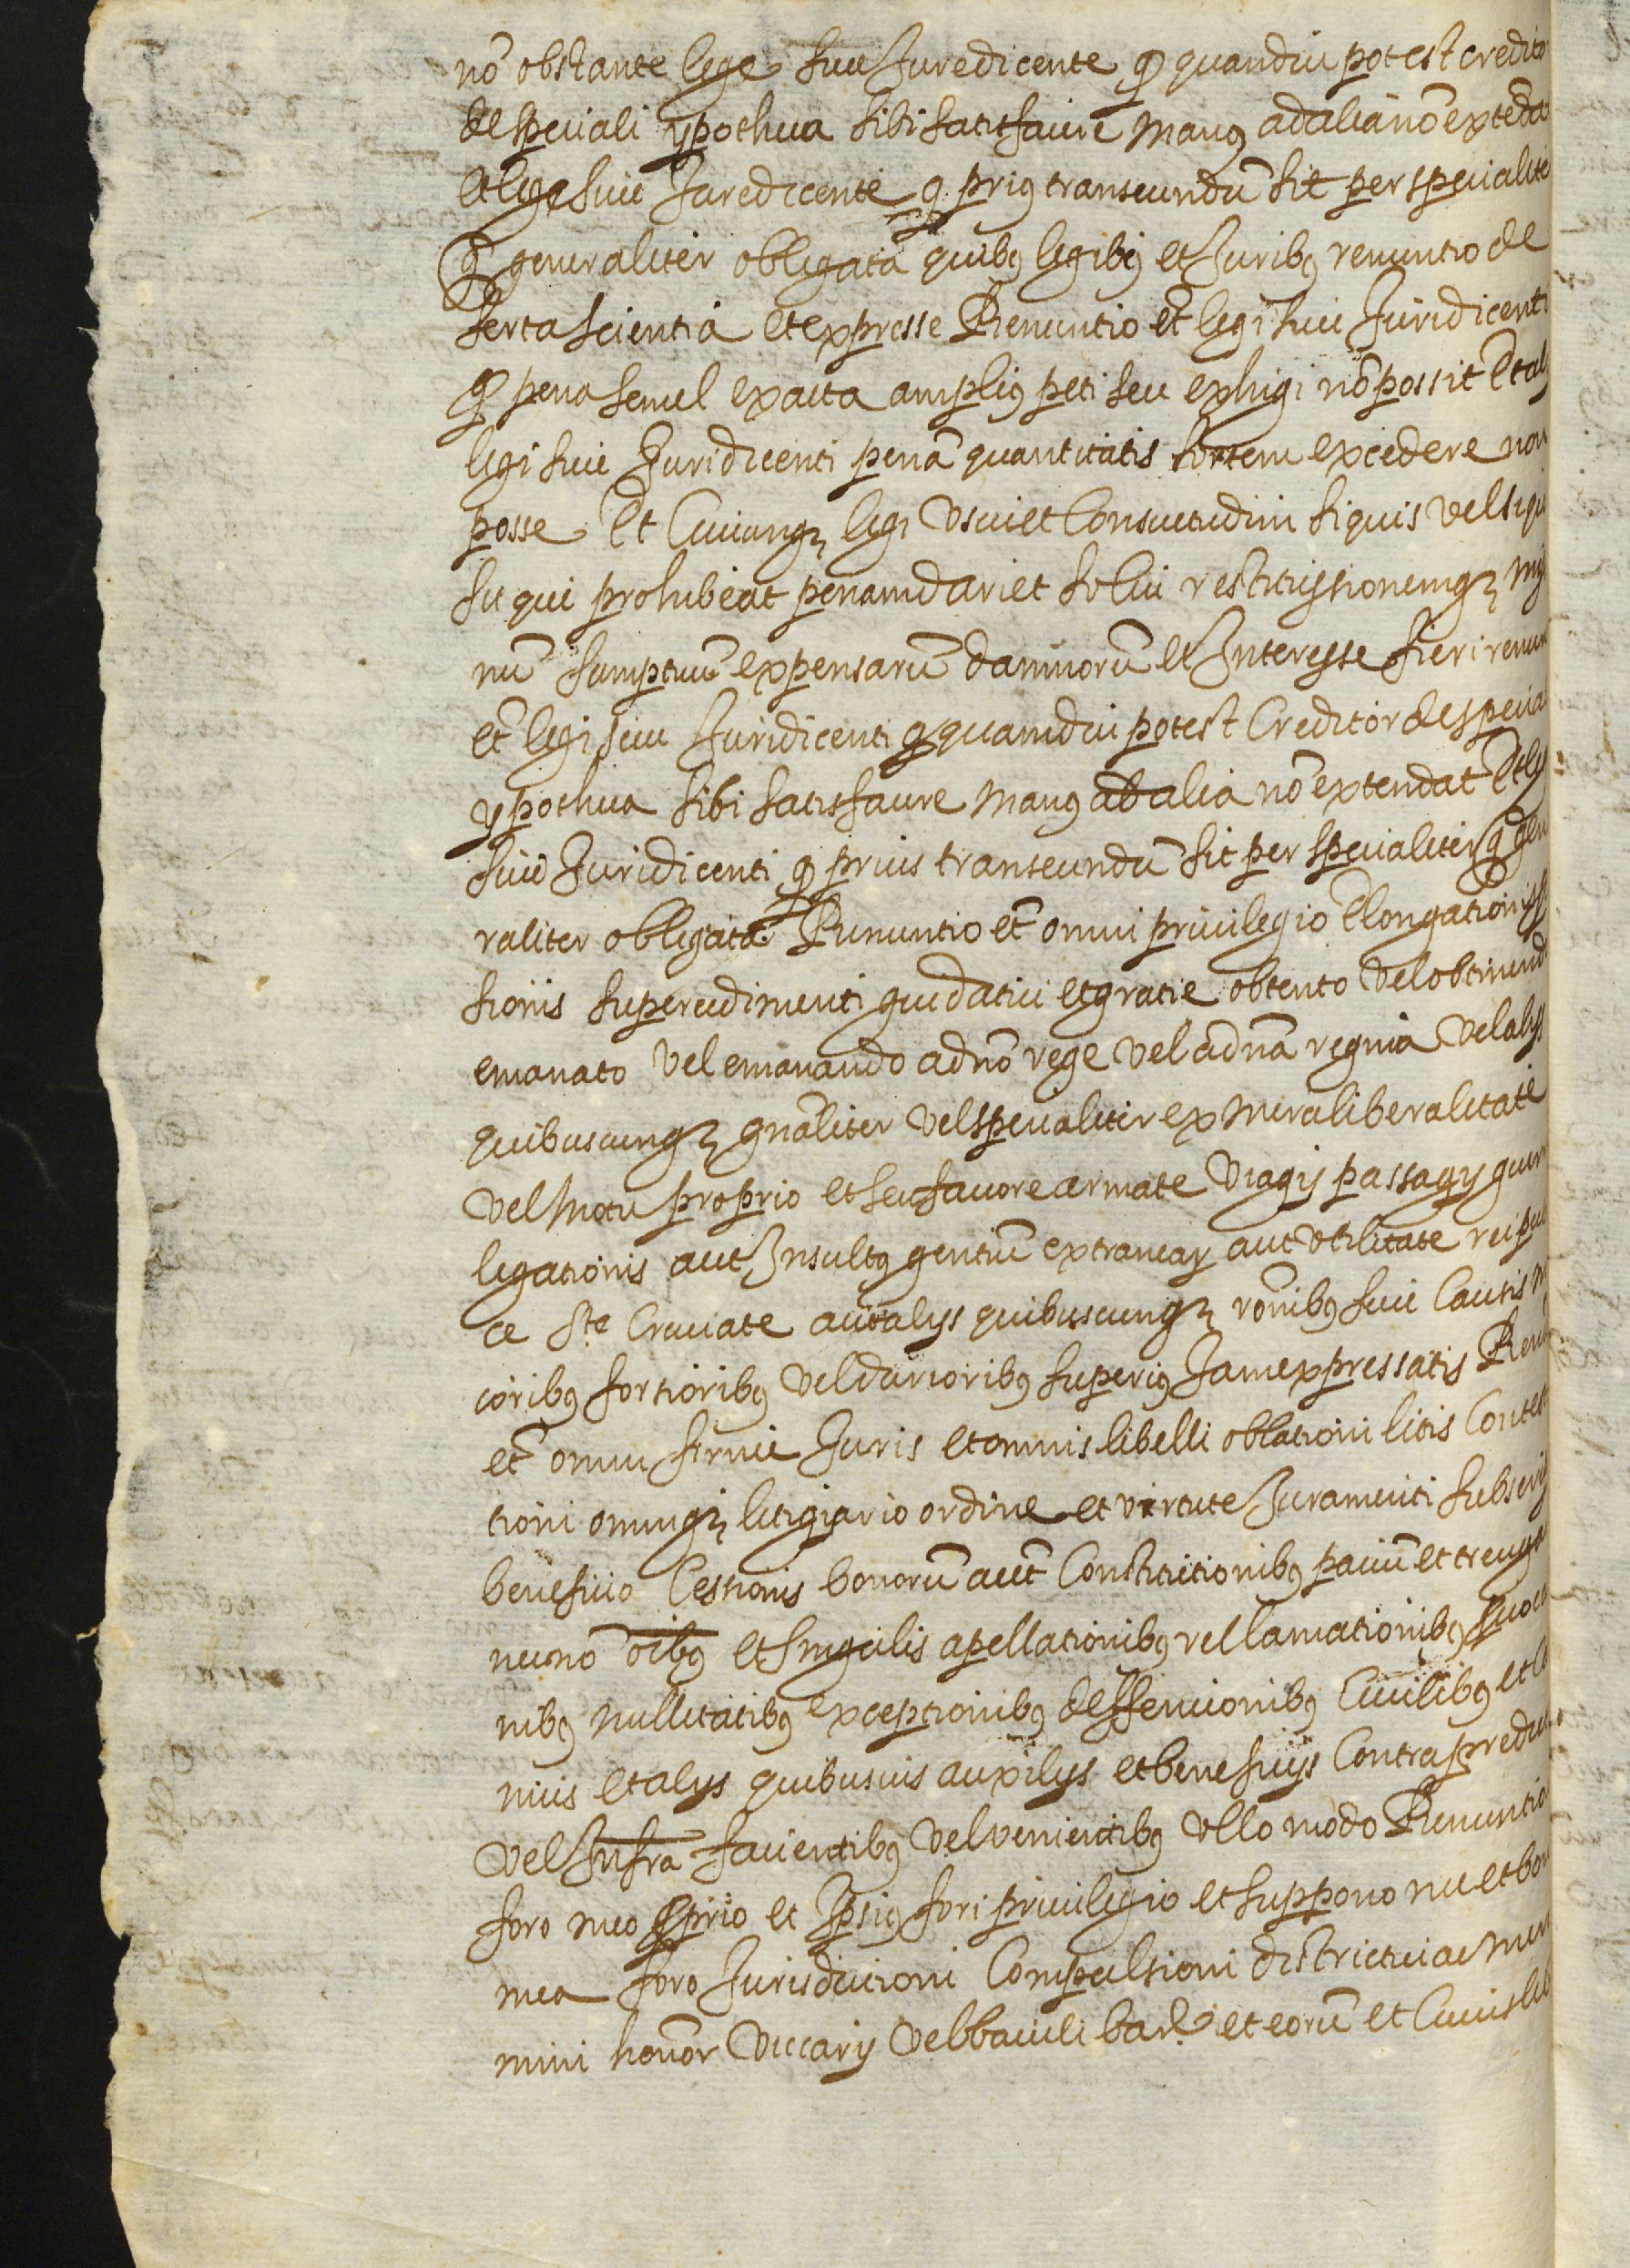 nō obstante lege siue Juredicente q̄ quandiu potest credito
de speciali ypotheca sibi satisfacere manus ad alia nō extēda
et lege siue Juredicente q̄ prius transeundū sit per specialite
q̄ generaliter obligata quibus legibus et Juribus renuntio de
serta scientia et expresse Renuntio et̄ legi siue Juridicenti
q̄ pena semel exacta amplius peti seu exhigi nō possit Et al
legi siue Juridicenti penā quantitatis sortem excedere non
posse Et Cuicunq₃ legi Vsui et Consuetudini si quis vel si qu
sit qui prohibeat penam dari et solui restitussionemq₃ mis
nū sumptuū expensarū damnorū et Interesse fieri renun
et̄ legi siue Juridicenti q̄ quamdiu potest Creditor de specia
ypotheca sibi satisfacere manus ad alia nō extendat Et le
siue Juridicenti q̄ prius transeundū sit per specialiter q̄ gen
raliter obligata Renuntio et̄ omni priuilegio Elongationis
sionis supercedimenti guidatici et gratie obtento vel obtinend
emanato vel emanando a dnō rege vel a dnā regina vel alys
quibuscunq₃ gnāliter vel specialiter ex mera liberalitate
vel motu proprio et seu fauore armate viagij passagij guerr
legationis aut Insultus gentiū extranear̄ aut vtilitate reipub
ce Ste Cruciate aut alys quibuscunq₃ rōnibus siue Causis m
ioribus fortioribus vel durioribus superius Jam expressatis Ren
et̄ omni firme Juris et omnis libelli oblationi litis Contes
tioni omniq₃ litigiario ordine et virtute Juramenti subscri
beneficio Cessionis bonorū aut̄ Constitutionibus paciū et treuga
necnō oibus et singulis apellationibus rellamationibus suoca
nibus nullitatibus exceptionibus deffencionibus Ciuilibus et C
nicis et alys quibusuis auxilys et beneficijs Contra predic
vel Infra facientibus vel venientibus vllo modo Renuntio
foro meo p̄prio et Ipsius fori priuilegio et suppono me et bon
mea foro Jurisdictioni Compulsioni districtui ac mer
mini honor̄ viccarij vel baiuli bar̄ et eorū et Cuiuslib